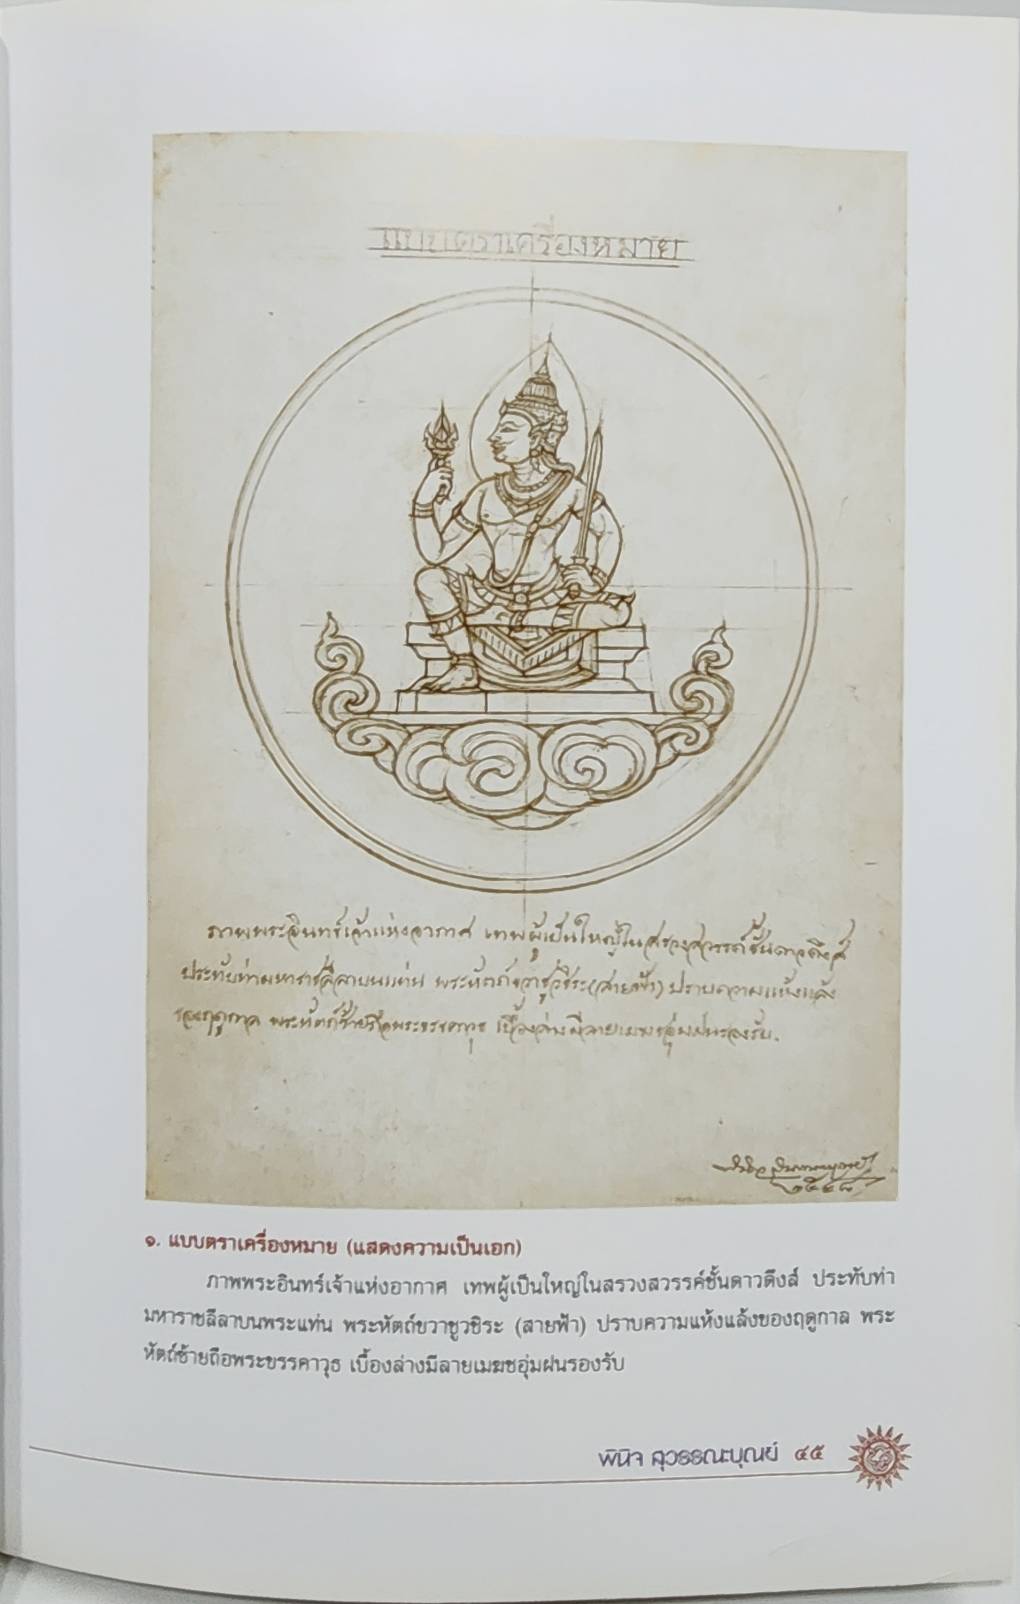 แบบตราเครื่องหมาย
ภาพพระอินทร์เจ้าแห่งอากาศ เทพผู้เป็นใหญ่ในสรวงสวรรค์ชั้นดาวดึงส์
ประทับท่ามหาราชลีลาบนแท่น พระหัตถ์ขวาชูวชิระ(สายฟ้า) ปราบความแห้งแล้ง
ของฤดูกาล พระหัตถ์ซ้ายถือพระขรรคาวุธ เบื้องล่างมีลายเมฆอุ่มฝนรองรับ.
พินิจ สุวรรณะบุณย์
๑. แบบตราเครื่องหมาย (แสดงความเป็นเอก)
ภาพพระอินทร์เจ้าแห่งอากาศ เทพผู้เป็นใหญ่ในสรวงสวรรค์ชั้นดาวดึงส์ ประทับท่า
มหาราชลีลาบนพระแท่น พระหัตถ์ขวาชูวชิระ (สายฟ้า) ปราบความแห้งแล้งของฤดูกาล พระ
หัตถ์ซ้ายถือพระขรรคาวุธ เบื้องล่างมีลายเมฆชอุ่มฝนรองรับ
พินิจ สุวรรณะบุณย์ ๔๕